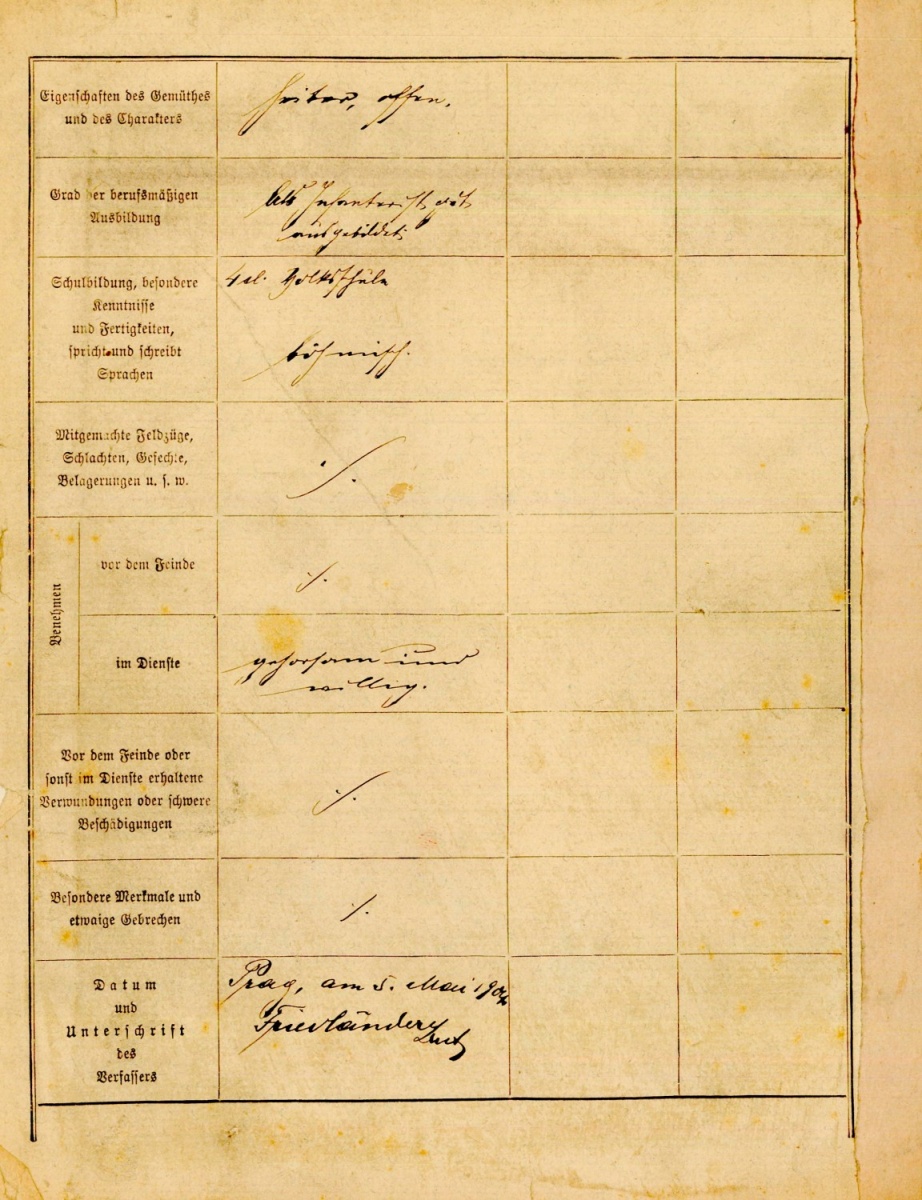 Eigenschaften des Gemüthes
und des Charakters
heiter, offen.
Grad der berufsmäßigen
Ausbildung
Als Infanterist gut
ausgebildet
Schulbildung, besondere
Kenntnisse
und Fertigkeiten,
spricht und schreibt
Sprachen
4 cl. Volksschule
böhmisch.
Mitgemachte Feldzüge,
Schlachten, Gefechte,
Belagerungen u. s. w.
./.
Benehmen
vor dem Feinde
./.
im Dienste
gehorsam und
willig.
Vor dem Feinde oder
sonst im Dienste erhaltene
Verwundungen oder schwere
Beschädigungen
./.
Besondere Merkmale und
etwaige Gebrechen
./.
Datum
und
Unterschrift
des
Verfassers
Prag, am 5. Mai
Friedländer